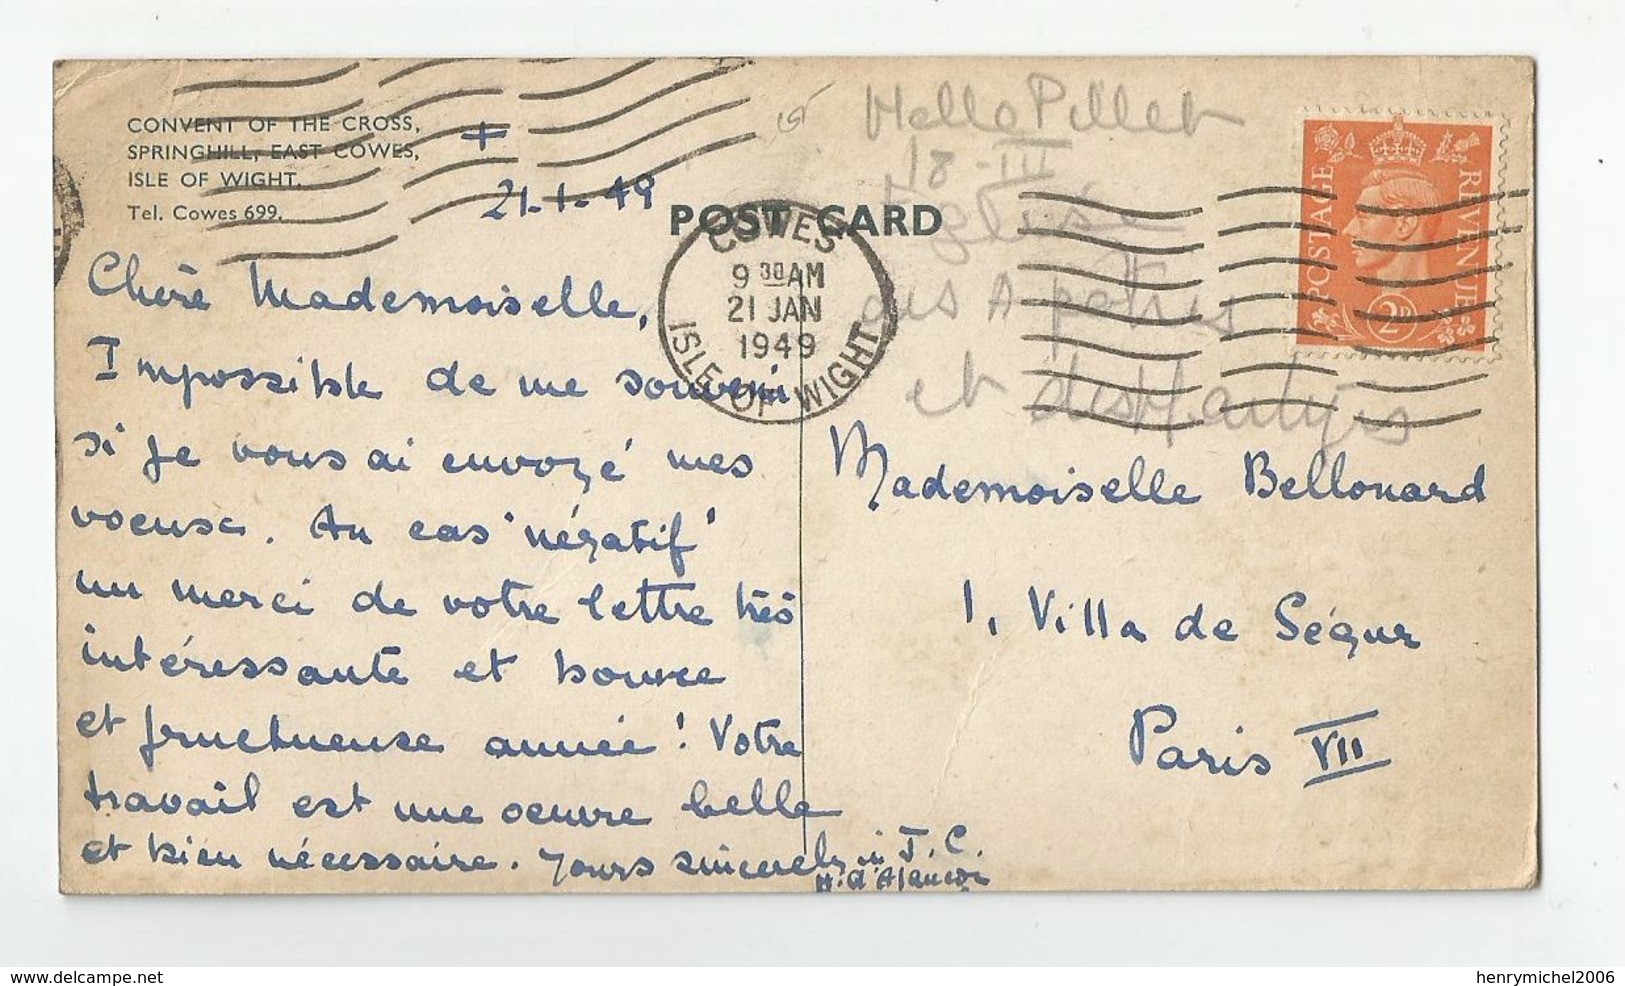 CONVENT OF THE CROSS,
SPRINGHILL, EAST COWES,
ISLE OF WIGHT.
Tel. Cowes 699.
+
21-1-49
POST CARD
COWES
9 30 AM
21 JAN
1949
ISLE OF WIGHT
POSTAGE REVENUE
2D
Melle Pillet
18-III
Eglise
des Apôtres
et des Martyrs
Chère Mademoiselle,
Impossible de me souvenir
si je vous ai envoyé mes
voeux. Au cas 'négatif'
un merci de votre lettre très
intéressante et bonne
et fructueuse année! Votre
travail est une oeuvre belle
et bien nécessaire. Yours sincerely in J.C.
Mademoiselle Bellouard
1, Villa de Ségur
Paris VII
delcampe.net
henrymichel2006